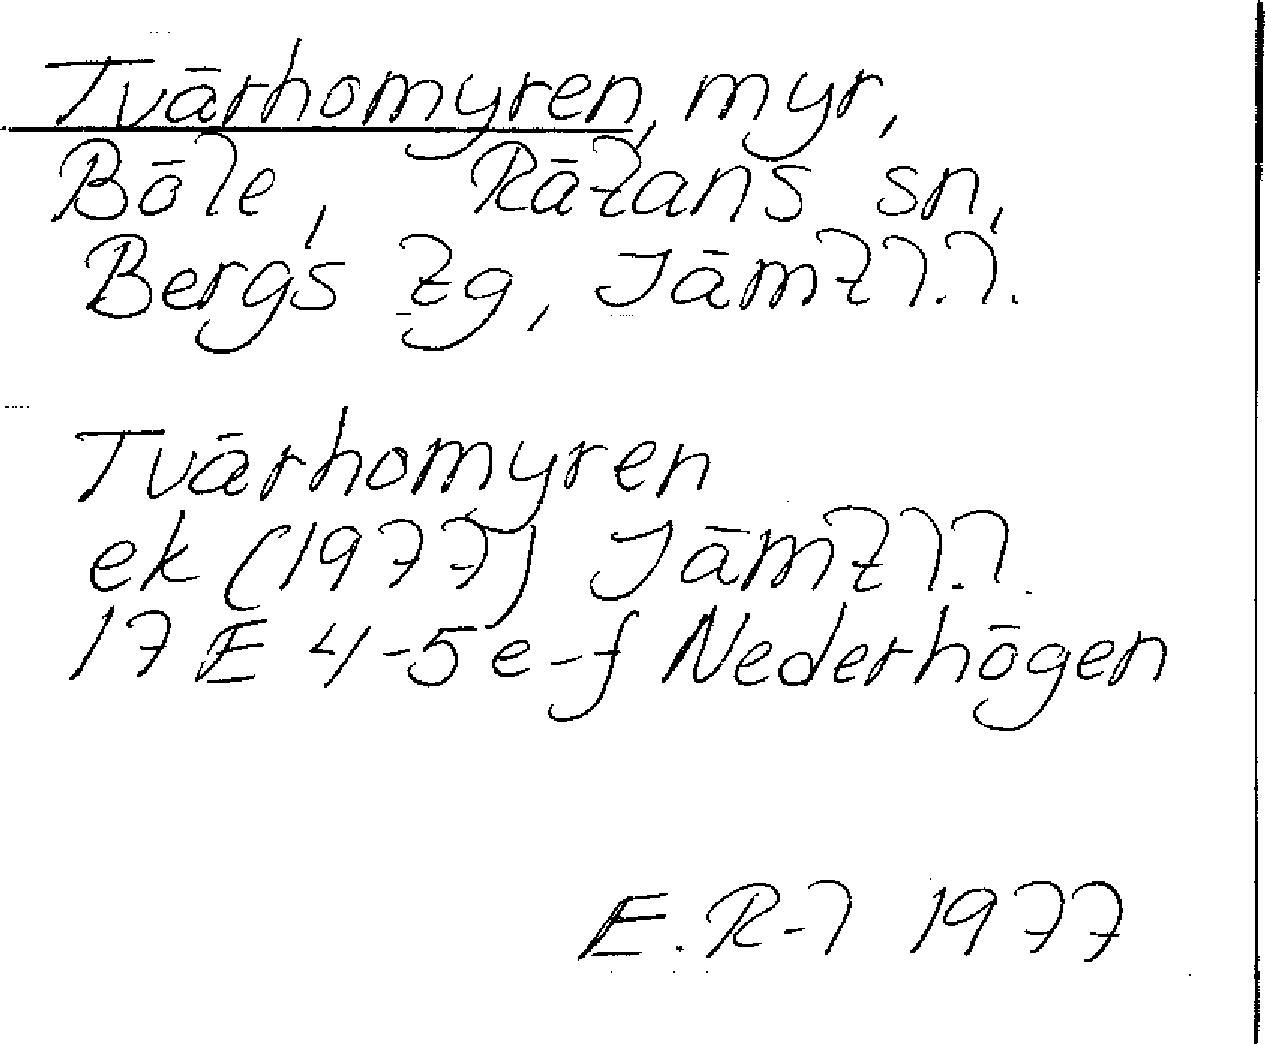 Tvärhomyren, myr,
Böle, Rätans sn,
Bergs tg, Jämtl.l.
Tvärhomyren
ek (1977) Jämtl.l.
17 E 4-5 e-f Nederhögen
E. R-l 1977